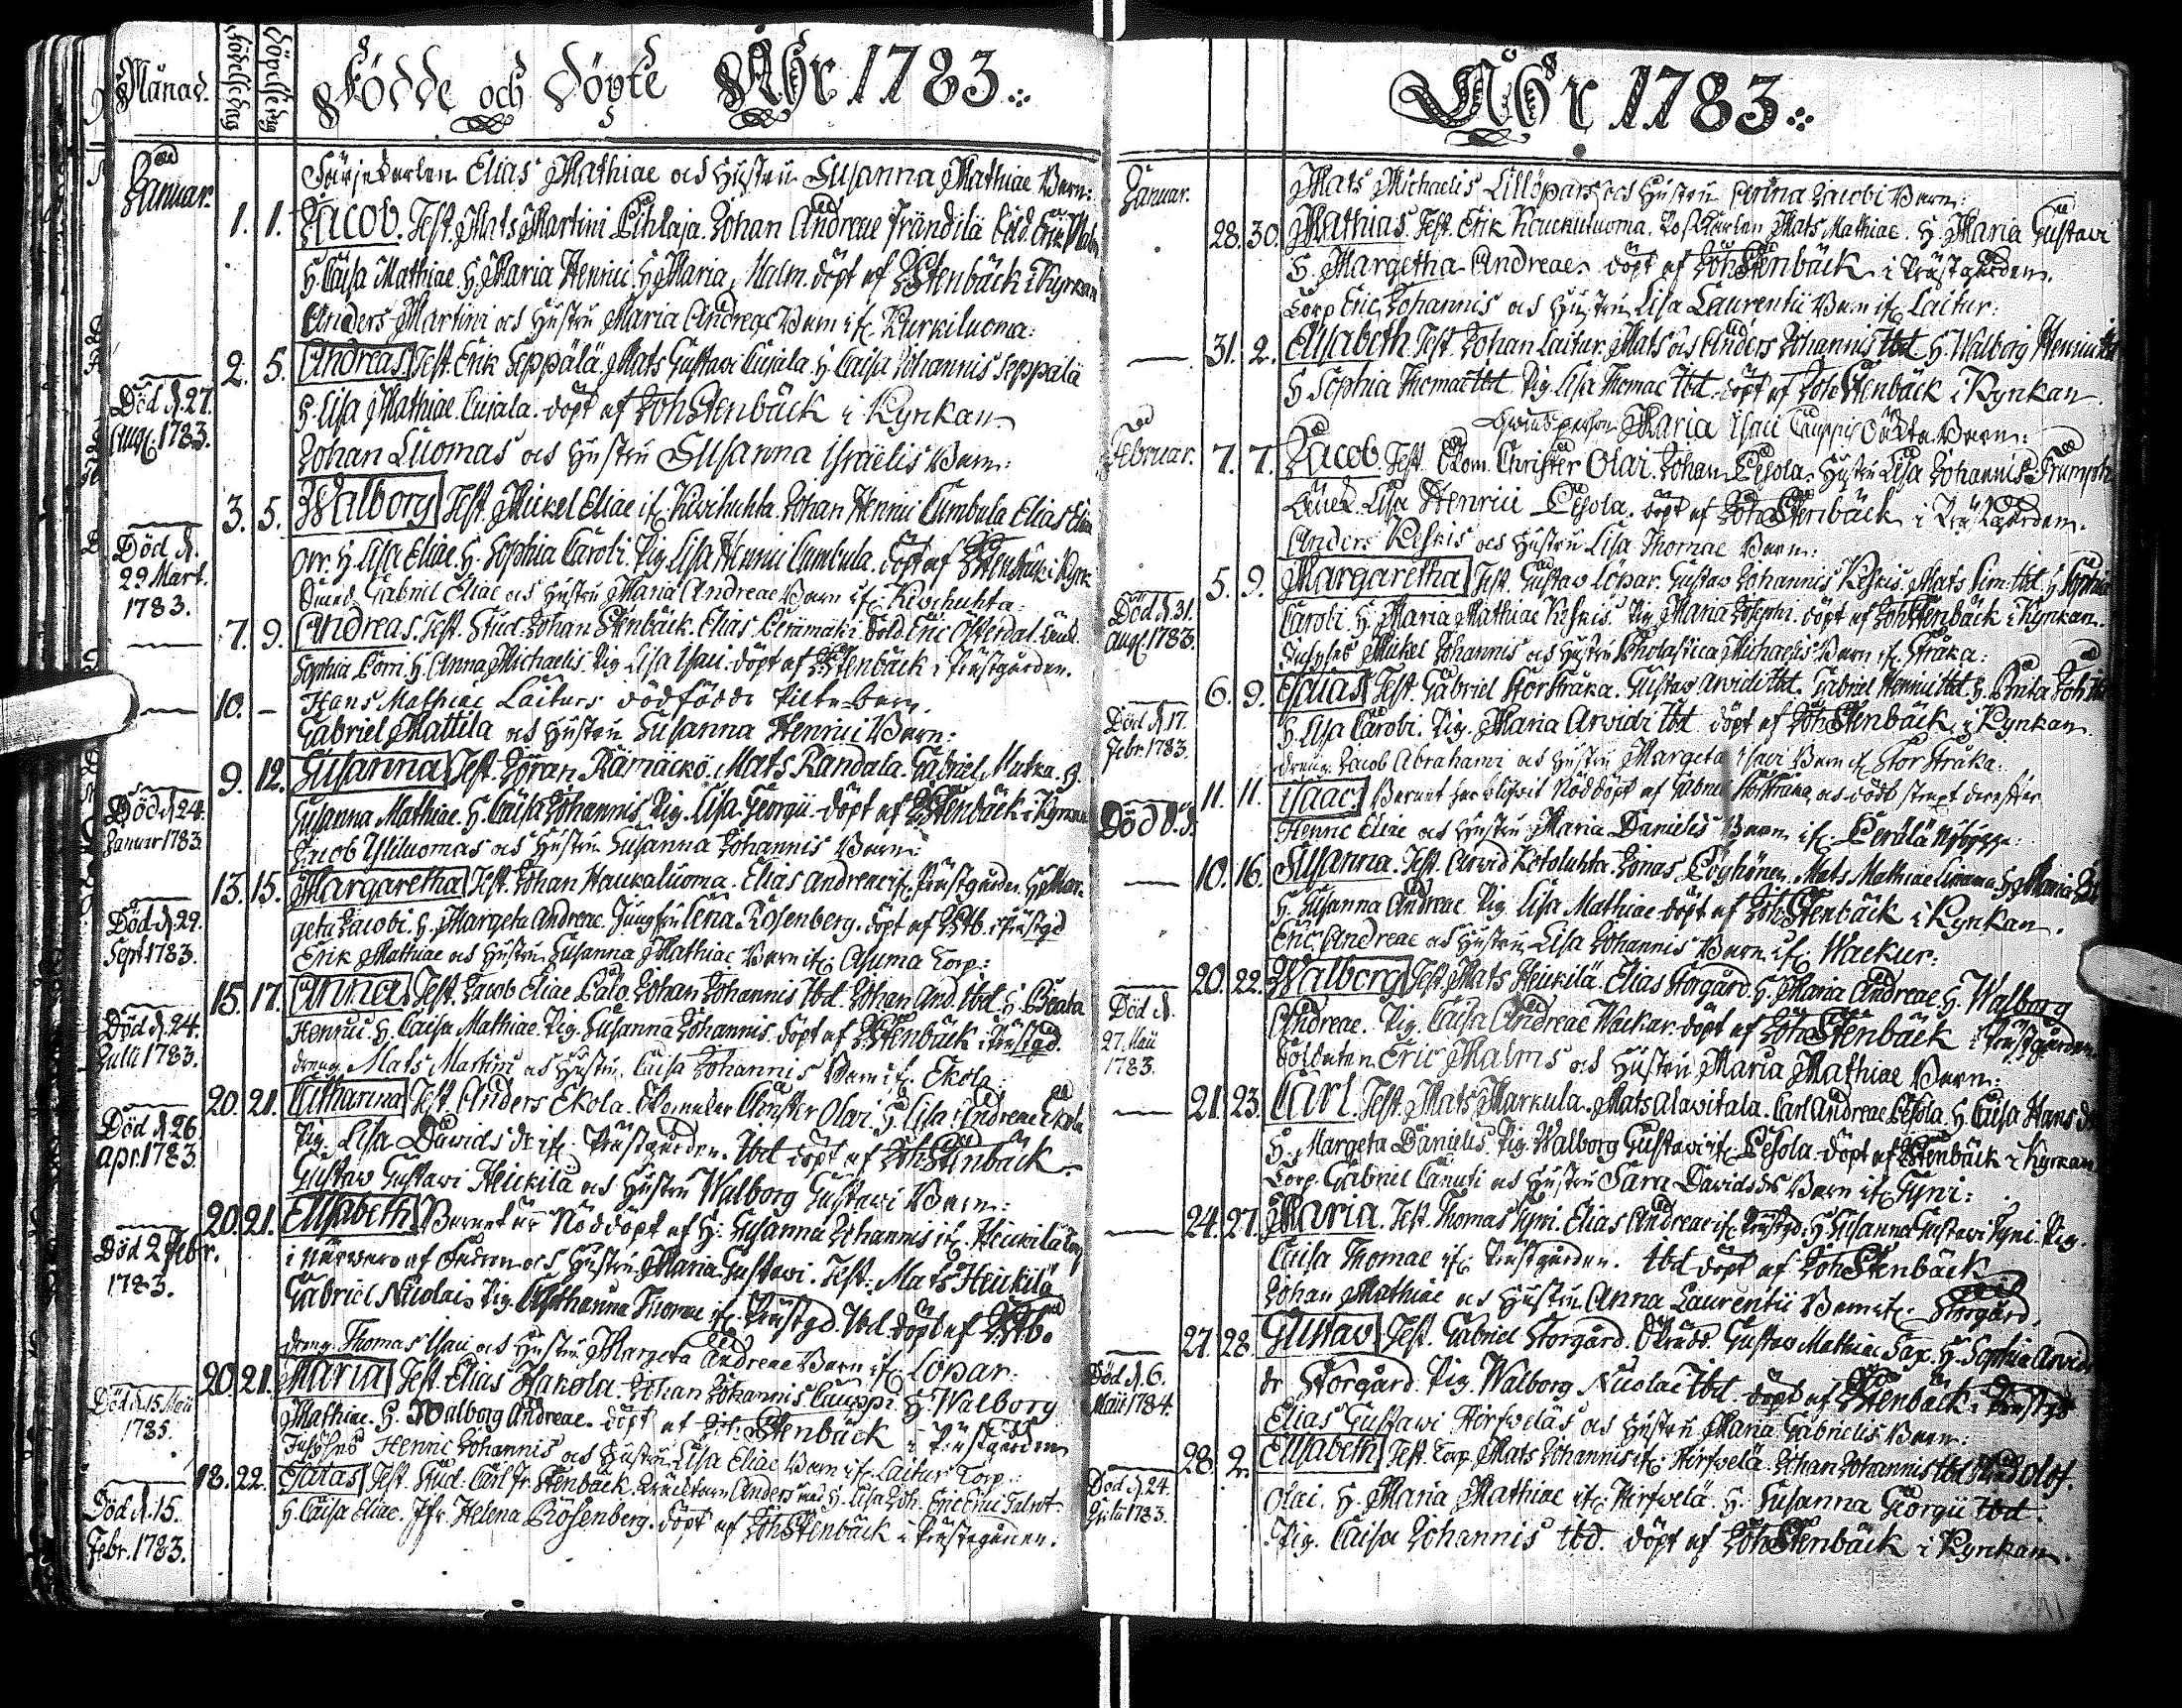 Månad.
Födelsedag
Döpelsedag
Födde och Döpte Åhr 1783.
Januar.
Elias Mathiae och Hustru Susanna Mathiae Barn:
1. 1. Jacob. Test. Mats Martini Pihlaja. Johan Andreae Frändilä Sold. Erik Malm
H. Caisa Mathiae. H. Maria Henrici. H. Maria Malm. döpt af JStenbäck i Kyrkan
Anders Martini och Hustru Maria Andreae Barn if. Kurkiluoma:
2. 5. Andreas. Test. Erik Seppälä. Mats Gustavi Cujala. H. Caisa Johannis Seppälä
Död d. 27. Aug. 1783.
H. Lisa Mathiae. Cujala. döpt af Joh Stenbäck i Kyrkan
Johan Luomas och Hustru Susanna Israëlis Barn:
3. 5. Walborg Test. Mickel Eliae if. Kivihuhta. Johan Henrici Cumbula Elias
Död d. 29 Mart. 1783.
H. Lisa Eliae. H. Sophia Caroli. Pig. Lisa Henrici Cumbula. döpt af JStenbäck i Kyrk:
Gabriel Eliae och Hustru Maria Andreae Barn if. Kivihuhta:
7. 9. Andreas. Test. Stud. Johan Stenbäck. Elias Perämäki. Sold. Eric Österdal.
Sophia H. Anna Michaelis. Pig. Lisa Isaci. döpt af JStenbäck i Prästgården.
10. – Hans Mathiae Laiturs dödfödde Pilte-Barn.
Gabriel Mattila och Hustru Susanna Henrici Barn:
9. 12. Susanna Test. Jöran Rämäckö. Mats Randala. Gabriel Mutka. H.
Död d. 24. Januar 1783.
Susanna Mathiae. H. Caisa Johannis. Pig. Lisa Georgii. döpt af JStenbäck i Kyrkan
Jacob Yliluomas och Hustru Susanna Johannis Barn:
13. 15. Margaretha Test. Johan Haukaluoma. Elias Andreae if. Prästgården. H. Mar-
Död d. 29. Sept. 1783.
geta Jacobi. H. Margeta Andreae. Jungfru Lena Rosenberg. döpt af JStb. i Prästgd
Erik Mathiae och Hustru Susanna Mathiae Barn if. Asuma Torp:
15. 17. Anna. Test. Jacob Eliae Palo. Johan Johannis Ibd. Johan And. Ibd. H. Beata
Död d. 24. Julii 1783.
Henrici. H. Caisa Mathiae. Pig. Susanna Johannis. döpt af JStenbäck i Prästgd.
dräng. Mats Martini och Hustru Caisa Johannis Barn if. Ekola:
20. 21. Catharina Test. Anders Ekola. Christer Olai. H. Lisa Andreae Ekola
Död d. 26. Apr. 1783.
Pig. Lisa Davids dr if. Prästgården. Ibd döpt af Joh Stenbäck.
Gustav Gustavi Heickilä och Hustru Walborg Gustavi Barn:
20. 21. Elisabeth Barnet är Nöddöpt af H: Susanna Johannis if. Heickilä
Död 2 Febr. 1783.
i närwaro af Fadren och Hustru Maria Gustavi. Test. Mats Heickilä
Gabriel Nicolai. Pig. Catharina Thomae if. Prästgd. Ibd. döpt af JStb.
dräng. Thomas Isaci och Hustru Margeta Andreae Barn if. Löpar.
20. 21. Maria Test. Elias Hakola. Johan Johannis Cauppi. H. Walborg
Död d. 15 Maii 1785.
Mathiae. H. Walborg Andreae. döpt af Joh. Stenbäck i Prästgården
Inhyses Henric Johannis och Hustru Lisa Eliae Barn if. Laitur Torp:
18. 22. Esaias Test. Stud. Carl Fr. Stenbäck. Anders H. Lisa Joh.
Död d. 15. Febr. 1783.
H. Caisa Eliae. Jfr. Helena Rosenberg. döpt af Joh Stenbäck i Prästegården.
Åhr 1783.
Januar.
Mats Michaelis Lillöpars och Hustru Anna Jacobi Barn:
28. 30. Mathias. Test. Erik Kauckuluoma. Mats Mathiae. H. Maria Gustavi
H. Margetha Andreae. döpt af Joh Stenbäck i Prästgården.
Torp. Eric Johannis och Hustru Lisa Laurentii Barn if. Laitur:
31. 2. Elisabeth Test. Johan Laitur. Mats och Anders Johannis Ibd. H. Walborg Henrici Ibd
H. Sophia Thomae Ibd. Pig. Lisa Thomae Ibd. döpt af Joh Stenbäck i Kyrkan.
Februar.
Maria Isaci Cauppis Oäkta Barn:
7. 7. Jacob. Test. Christer Olai. Johan Pesola. Hustru Lisa Johannis Trumph
Lisa Henrici Pesola. döpt af Joh Stenbäck i Prästgården.
Anders Keskis och Hustru Lisa Thomae Barn:
5. 9. Margaretha Test. Gustav Löpar. Gustav Johannis Keskis. Mats Sim. Ibd. H. Sophia
Död d. 31. Aug. 1783.
Caroli. H. Maria Mathiae Keskis. Pig. Maria Josephi. döpt af Joh Stenbäck i Kyrkan.
Inhyses Mickel Johannis och Hustru Scholastica Michaelis Barn if. Stråka:
6. 9. Esaias Test. Gabriel Stor Stråka. Gustav Arvidi Ibd. Gabriel Henrici Ibd. H. Brita Joh. Ibd
Död d. 17. Febr. 1783.
H. Lisa Jacobi. Pig. Maria Arvidi Ibd döpt af Joh Stenbäck i Kyrkan.
dräng. Jacob Abrahami och Hustru Margeta Isaci Barn if. Stor Stråka:
11. 11. Isaac. Barnet har blifwit Nöddöpt af Gabriel Storstråka, och dödt strapt derefter.
Död
Henric Eliae och Hustru Maria Danielis Barn if. Perälä Nybygge:
10. 16. Susanna. Test. Arvid Kotoluhta. Jonas Pöyhönen. Mats Mathiae H. Maria
H. Susanna Andreae. Pig. Lisa Mathiae döpt af Joh Stenbäck i Kyrkan.
Eric Andreae och Hustru Lisa Johannis Barn if. Wackur:
20. 22. Walborg Test. Mats Heickilä. Elias Storgård. H. Maria Andreae H. Walborg
Död d. 27. Maii 1783.
Andreae. Pig. Caisa Andreae Wackur. döpt af Joh Stenbäck i Prästgården.
Soldaten Eric Malms och Hustru Maria Mathiae Barn:
21. 23. Carl. Test. Mats Markula. Mats Alavitala. Carl Andreae Pesola. H. Caisa Hans dr
H. Margeta Danielis. Pig. Walborg Gustavi if. Pesola. döpt af JStenbäck i Kyrkan
Torp. Gabriel Canuti och Hustru Sara Davids dr Barn if. Fyni:
24. 27. Maria. Test. Thomas Fyni. Elias Andreae if. Prästgd. H. Susanna Gustavi Fyni. Pig.
Caisa Thomae if. Prästgården. Ibd döpt af Joh Stenbäck
Johan Mathiae och Hustru Anna Laurentii Barn if. Storgård.
27. 28. Gustav. Test. Gabriel Storgård. Gustav Mathiae Sax. H. Sophia Arvids
Död d. 6. Maii 1784.
dr Storgård. Pig. Walborg Nicolai Ibd döpt af JStenbäck i Prästgd
Elias Gustavi Hirfweläs och Hustru Maria Gabrielis Barn:
28. 2. Elisabeth Test. Torp. Mats Johannis if. Hirfwelä. Johan Johannis Ibd Olof.
Död d. 24. Julii 1783.
Olai. H. Maria Mathiae if. Hirfwelä. H. Susanna Georgii Ibd.
Pig. Caisa Johannis Ibd. döpt af Joh Stenbäck i Kyrkan.